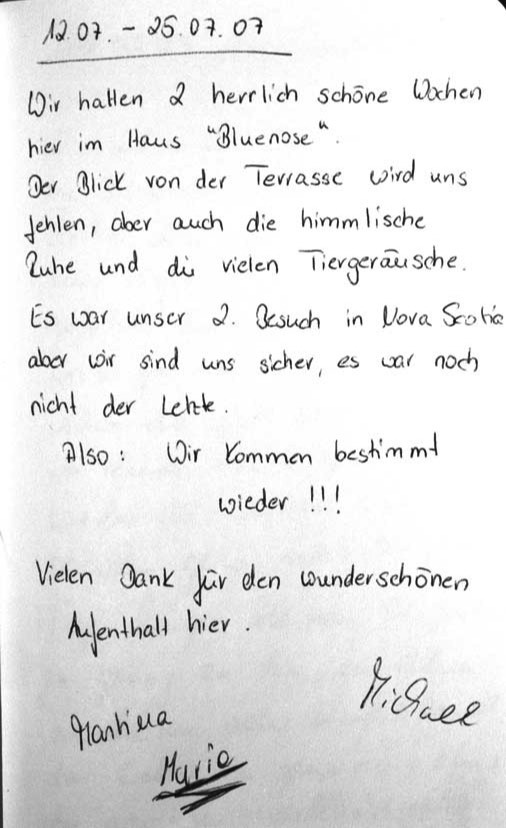 12.07. – 25.07.07
Wir hatten 2 herrlich schöne Wochen
hier im Haus "Bluenose".
Der Blick von der Terrasse wird uns
fehlen, aber auch die himmlische
Ruhe und die vielen Tiergeräusche.
Es war unser 2. Besuch in Nova Scotia
aber wir sind uns sicher, es war noch
nicht der Letzte.
Also: Wir kommen bestimmt
wieder !!!
Vielen Dank für den wunderschönen
Aufenthalt hier.
Michael
Martina
Mario